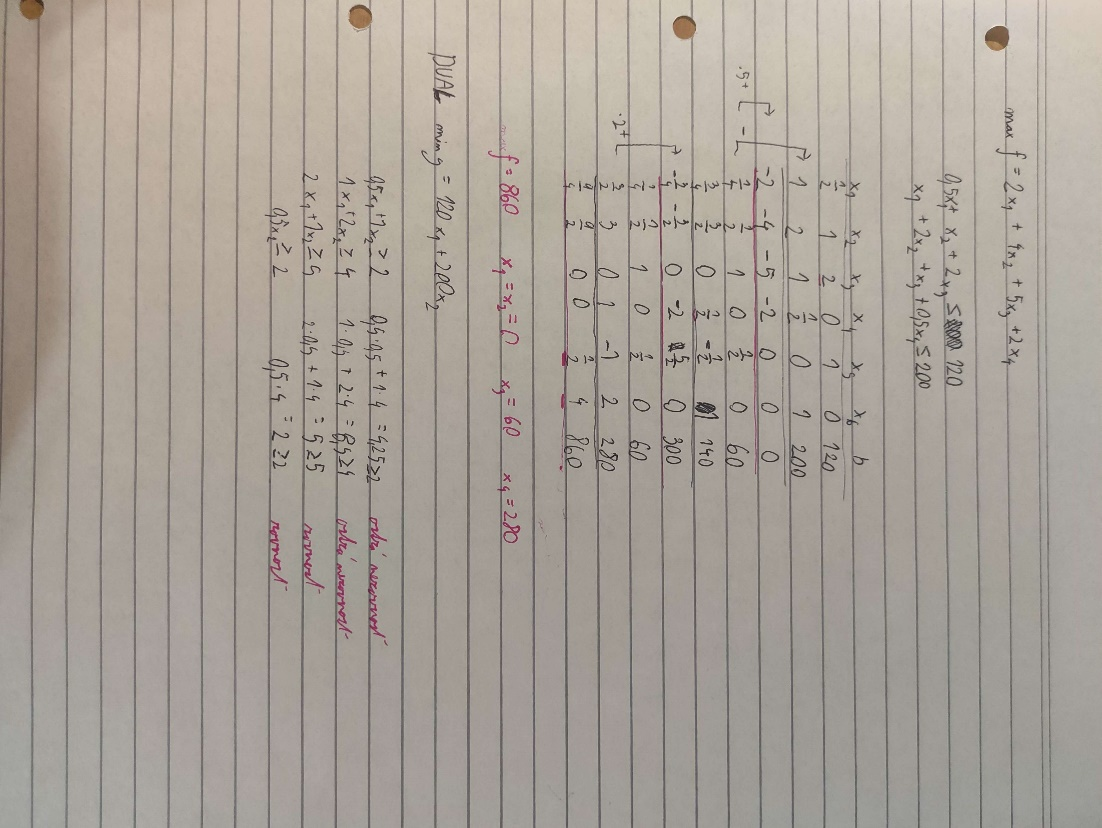 max f = 2x₁ + 4x₂ + 5x₃ + 2x₄
0,5x₁ + x₂ + 2x₃ ≤ 120
x₁ + 2x₂ + x₃ + 0,5x₄ ≤ 200
x₁ x₂ x₃ x₄ x₅ x₆ b
1/2 1 2 0 1 0 120
1 2 1 1/2 0 1 200
-2 -4 -5 -2 0 0 0
·5+ - 1/4 1/2 1 0 1/2 0 60
3/4 3/2 0 1/2 -1/2 1 140
-3/4 -3/2 0 -2 5/2 0 300
1/4 1/2 1 0 1/2 0 60
·2+ 3/2 3 0 1 -1 2 280
9/4 9/2 0 0 1/2 4 860
max f = 860 x₁ = x₂ = 0 x₃ = 60 x₄ = 280
DUAL min g = 120x₁ + 200x₂
0,5x₁ + 1x₂ ≥ 2 0,5·0,5 + 1·4 = 4,25 ≥ 2 ostrá nerovnost
1x₁ + 2x₂ ≥ 4 1·0,5 + 2·4 = 8,5 ≥ 4 ostrá nerovnost
2x₁ + 1x₂ ≥ 5 2·0,5 + 1·4 = 5 ≥ 5 rovnost
0,5x₂ ≥ 2 0,5·4 = 2 ≥ 2 rovnost